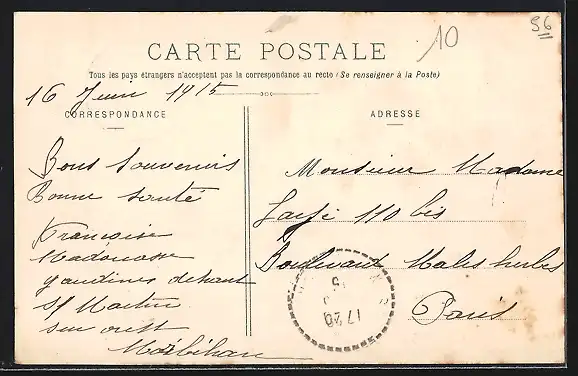 56
10
CARTE POSTALE
Tous les pays étrangers n'acceptent pas la correspondance au recto (Se renseigner à la Poste)
16 Juin 1915
CORRESPONDANCE
Bons Souvenirs
Bonne santé
Françoise
St Martin
sur oust
Morbihan
ADRESSE
Monsieur Madame
110 bis
Boulevard Malesherbes
Paris